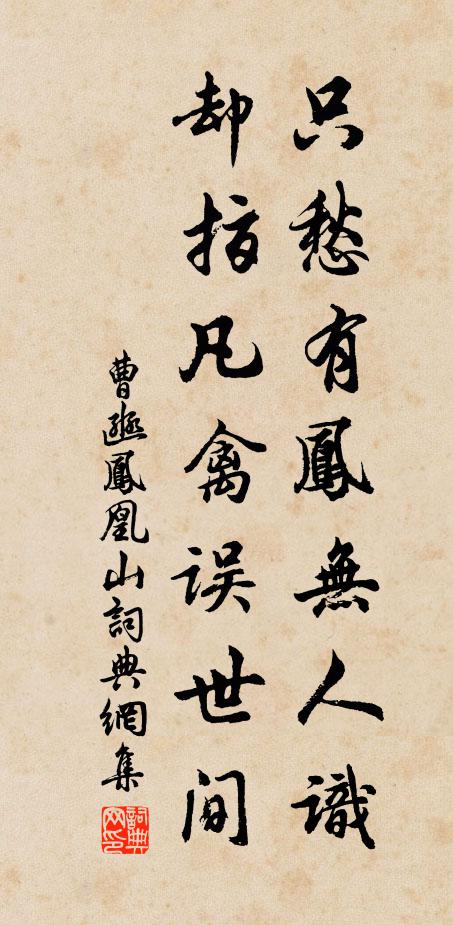 只愁有鳳無人識
却指凡禽误世间
曹豳鳳凰山詞典網集
詞典網印